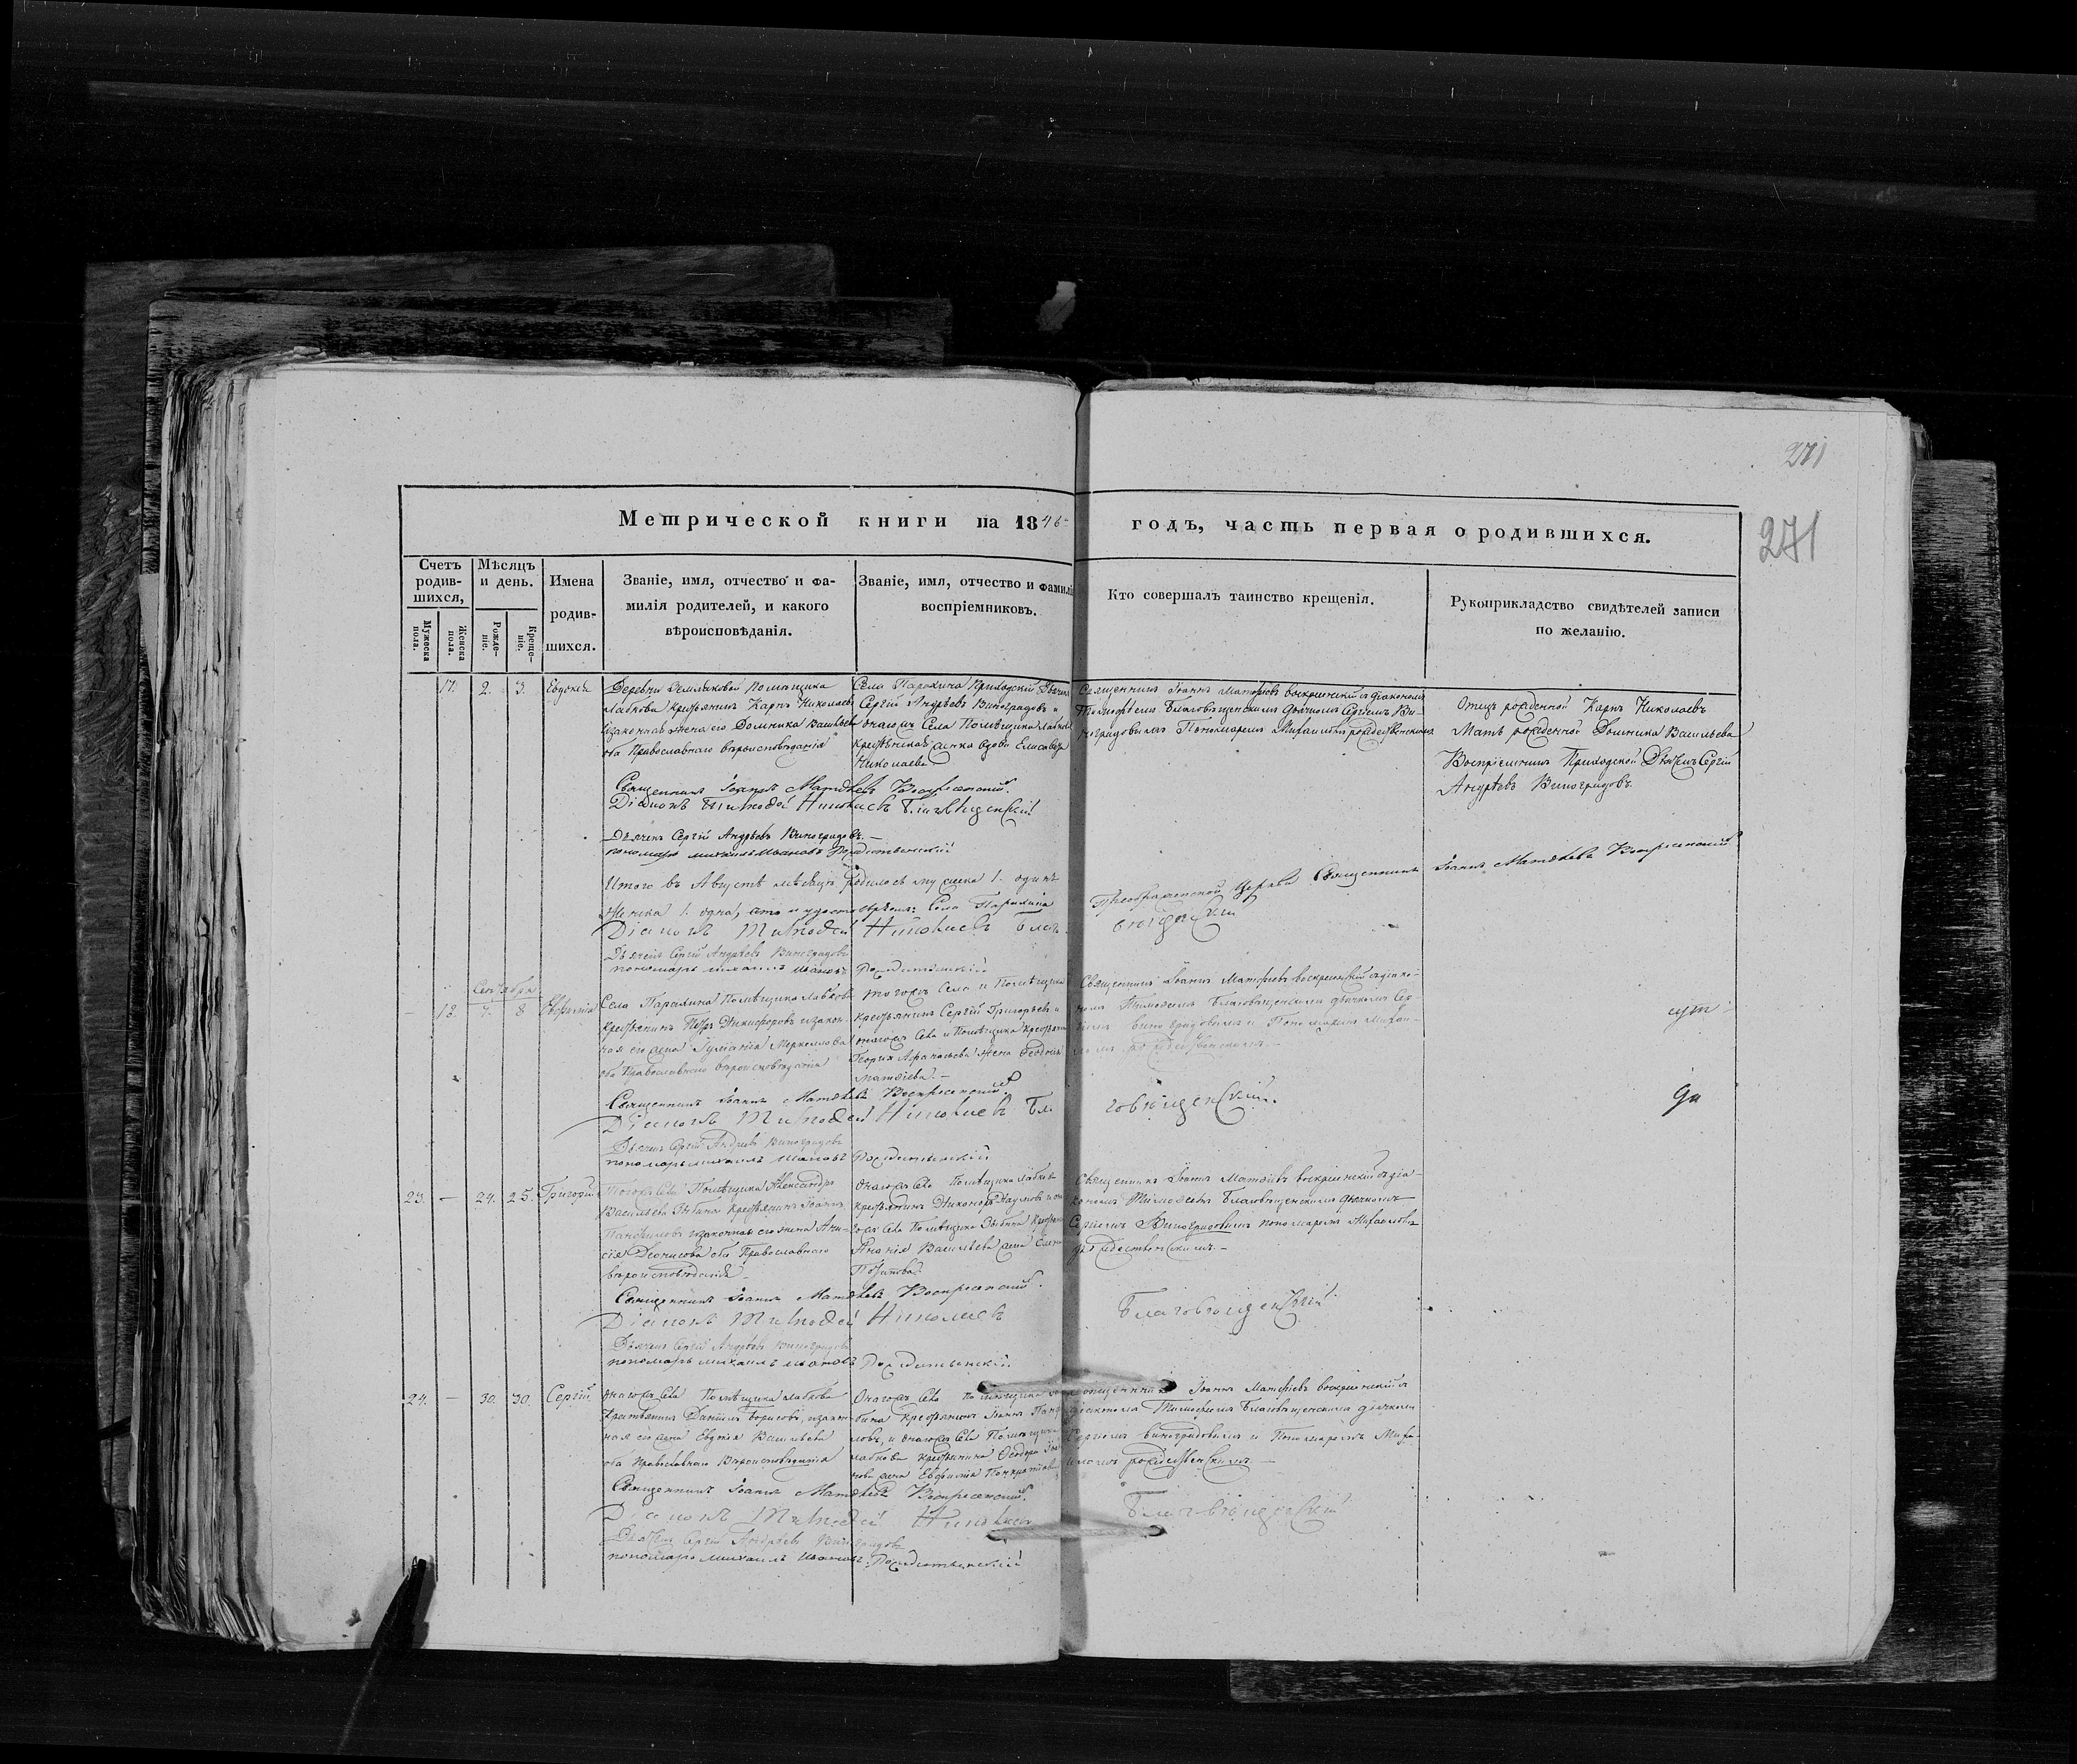 271
271
Метрической книги на 1846 годъ, часть первая о родившихся.
Счетъ родившихся,
Мужеска пола.
Женска пола.
Мѣсяцъ и день.
Рожденіе.
Крещеніе.
Имена родившихся.
Званіе, имя, отчество и фамилія родителей, и какого вѣроисповѣданія.
Званіе, имя, отчество и фамилія воспріемниковъ.
Кто совершалъ таинство крещенія.
Рукоприкладство свидѣтелей записи по желанію.
17. 2. 3. Евдокія
Деревни Помѣщика
Лабкова Крестьянинъ Карпъ Николаевъ
изаконная жена его Домника Васильева
оба Православнаго вѣроисповѣданія
Села Парахина Приходскій Дьячекъ
Сергій Андрѣевъ Виноградовъ и
онагожъ Села Помѣщика Лабкова
Крестьянская женка вдова Елисавета
Николаева
Священникъ Іоаннъ Матѳіевъ Воскресенскій съ діакономъ
Тимоѳеемъ Благовѣщенскимъ дьячкомъ Сергіемъ Ви-
ноградовымъ Пономаремъ Михаиломъ рождественскимъ
Отецъ рожденной Карпъ Николаевъ
Мать рожденной Домника Васильева
Воспріемникъ Приходской Дьячекъ Сергій
Андрѣевъ Виноградовъ.
Священникъ Іоаннъ Матѳіевъ Воскресенскій.
Діаконъ Тимоѳей Николаевъ Благовѣщенскій
Дьячекъ Сергій Андрѣевъ Виноградовъ.
пономарь михаилъ Ивановъ Рождественскій
Итого въ Августѣ мѣсяцѣ родилось мужеска 1. одинъ
женска 1. одна, Села Парахина
Преображенской Церкви Священникъ Іоаннъ Матѳіевъ Воскресенскій
Діаконъ Тимоѳей Николаевъ Благовѣщенскій
Дьячекъ Сергій Андрѣевъ Виноградовъ
пономарь михаилъ Ивановъ Рождественскій
Сентября
18. 7. 8 Евфимія
Села Парахина Помѣщика Лабкова
крестьянинъ Петръ Никифоровъ изакон-
ная его жена Іуліанія Меркулова
оба Православнаго вѣроисповѣданія
тогожъ Села и Помѣщика
крестьянинъ Сергій Григорьевъ и
онагожъ Села и Помѣщика крестьянина
Георгія Аѳанасьева жена Ѳеодосія
матѳіева.
Священникъ Іоаннъ Матѳіевъ воскресенскій съ діако-
номъ Тимоѳеемъ Благовѣщенскимъ дьячкомъ Сер-
гіемъ Виноградовымъ и Пономаремъ Михаи-
ломъ рождественскимъ.
Священникъ Іоаннъ Матѳіевъ Воскресенскій.
Діаконъ Тимоѳей Николаевъ Благовѣщенскій.
Дьячекъ Сергій Андреевъ Виноградовъ
пономарь михаилъ Ивановъ Рождественскій
23. — 24. 25. Григорій
Тогожъ Села Помѣщика Александра
Васильева крестьянинъ Іоаннъ
Панфиловъ изаконная его жена Ани-
сія Денисова оба Православнаго
вѣроисповѣданія
Онагожъ Села Помѣщика Лабкова
крестьянинъ Никоноръ Наумовъ и она
гожъ Села Помѣщика крестьянина
Ананія Васильева жена
Священникъ Іоаннъ Матѳіевъ воскресенскій съ діа-
кономъ Тимоѳеемъ Благовѣщенскимъ дьячкомъ
Сергіемъ Виноградовымъ пономаремъ Михаиломъ
рождественскимъ.
Священникъ Іоаннъ Матѳіевъ Воскресенскій.
Діаконъ Тимоѳей Николаевъ Благовѣщенскій
Дьячекъ Сергій Андрѣевъ Виноградовъ
пономарь михаилъ Ивановъ Рождественскій
24. — 30. 30. Сергій
онагожъ Села Помѣщика Лабкова
Крестьянинъ Даніилъ Борисовъ, изакон-
ная его жена Евдокія Васильева
оба Православнаго Вѣроисповѣданія
Онагожъ Села Помѣщика
крестьянинъ Іоаннъ Панфи
ловъ, и онагожъ Села Помѣщика
лабкова крестьянина Ѳеодора
жена Евфимія Панкратова
Священникъ Іоаннъ Матѳіевъ воскресенскій съ
діакономъ Тимоѳеемъ Благовѣщенскимъ дьячкомъ
Сергіемъ виноградовымъ и Пономаремъ Миха-
иломъ рождественскимъ
Священникъ Іоаннъ Матѳіевъ Воскресенскій.
Діаконъ Тимоѳей Николаевъ Благовѣщенскій
Дьячекъ Сергій Андрѣевъ Виноградовъ
пономарь михаилъ Ивановъ Рождественскій